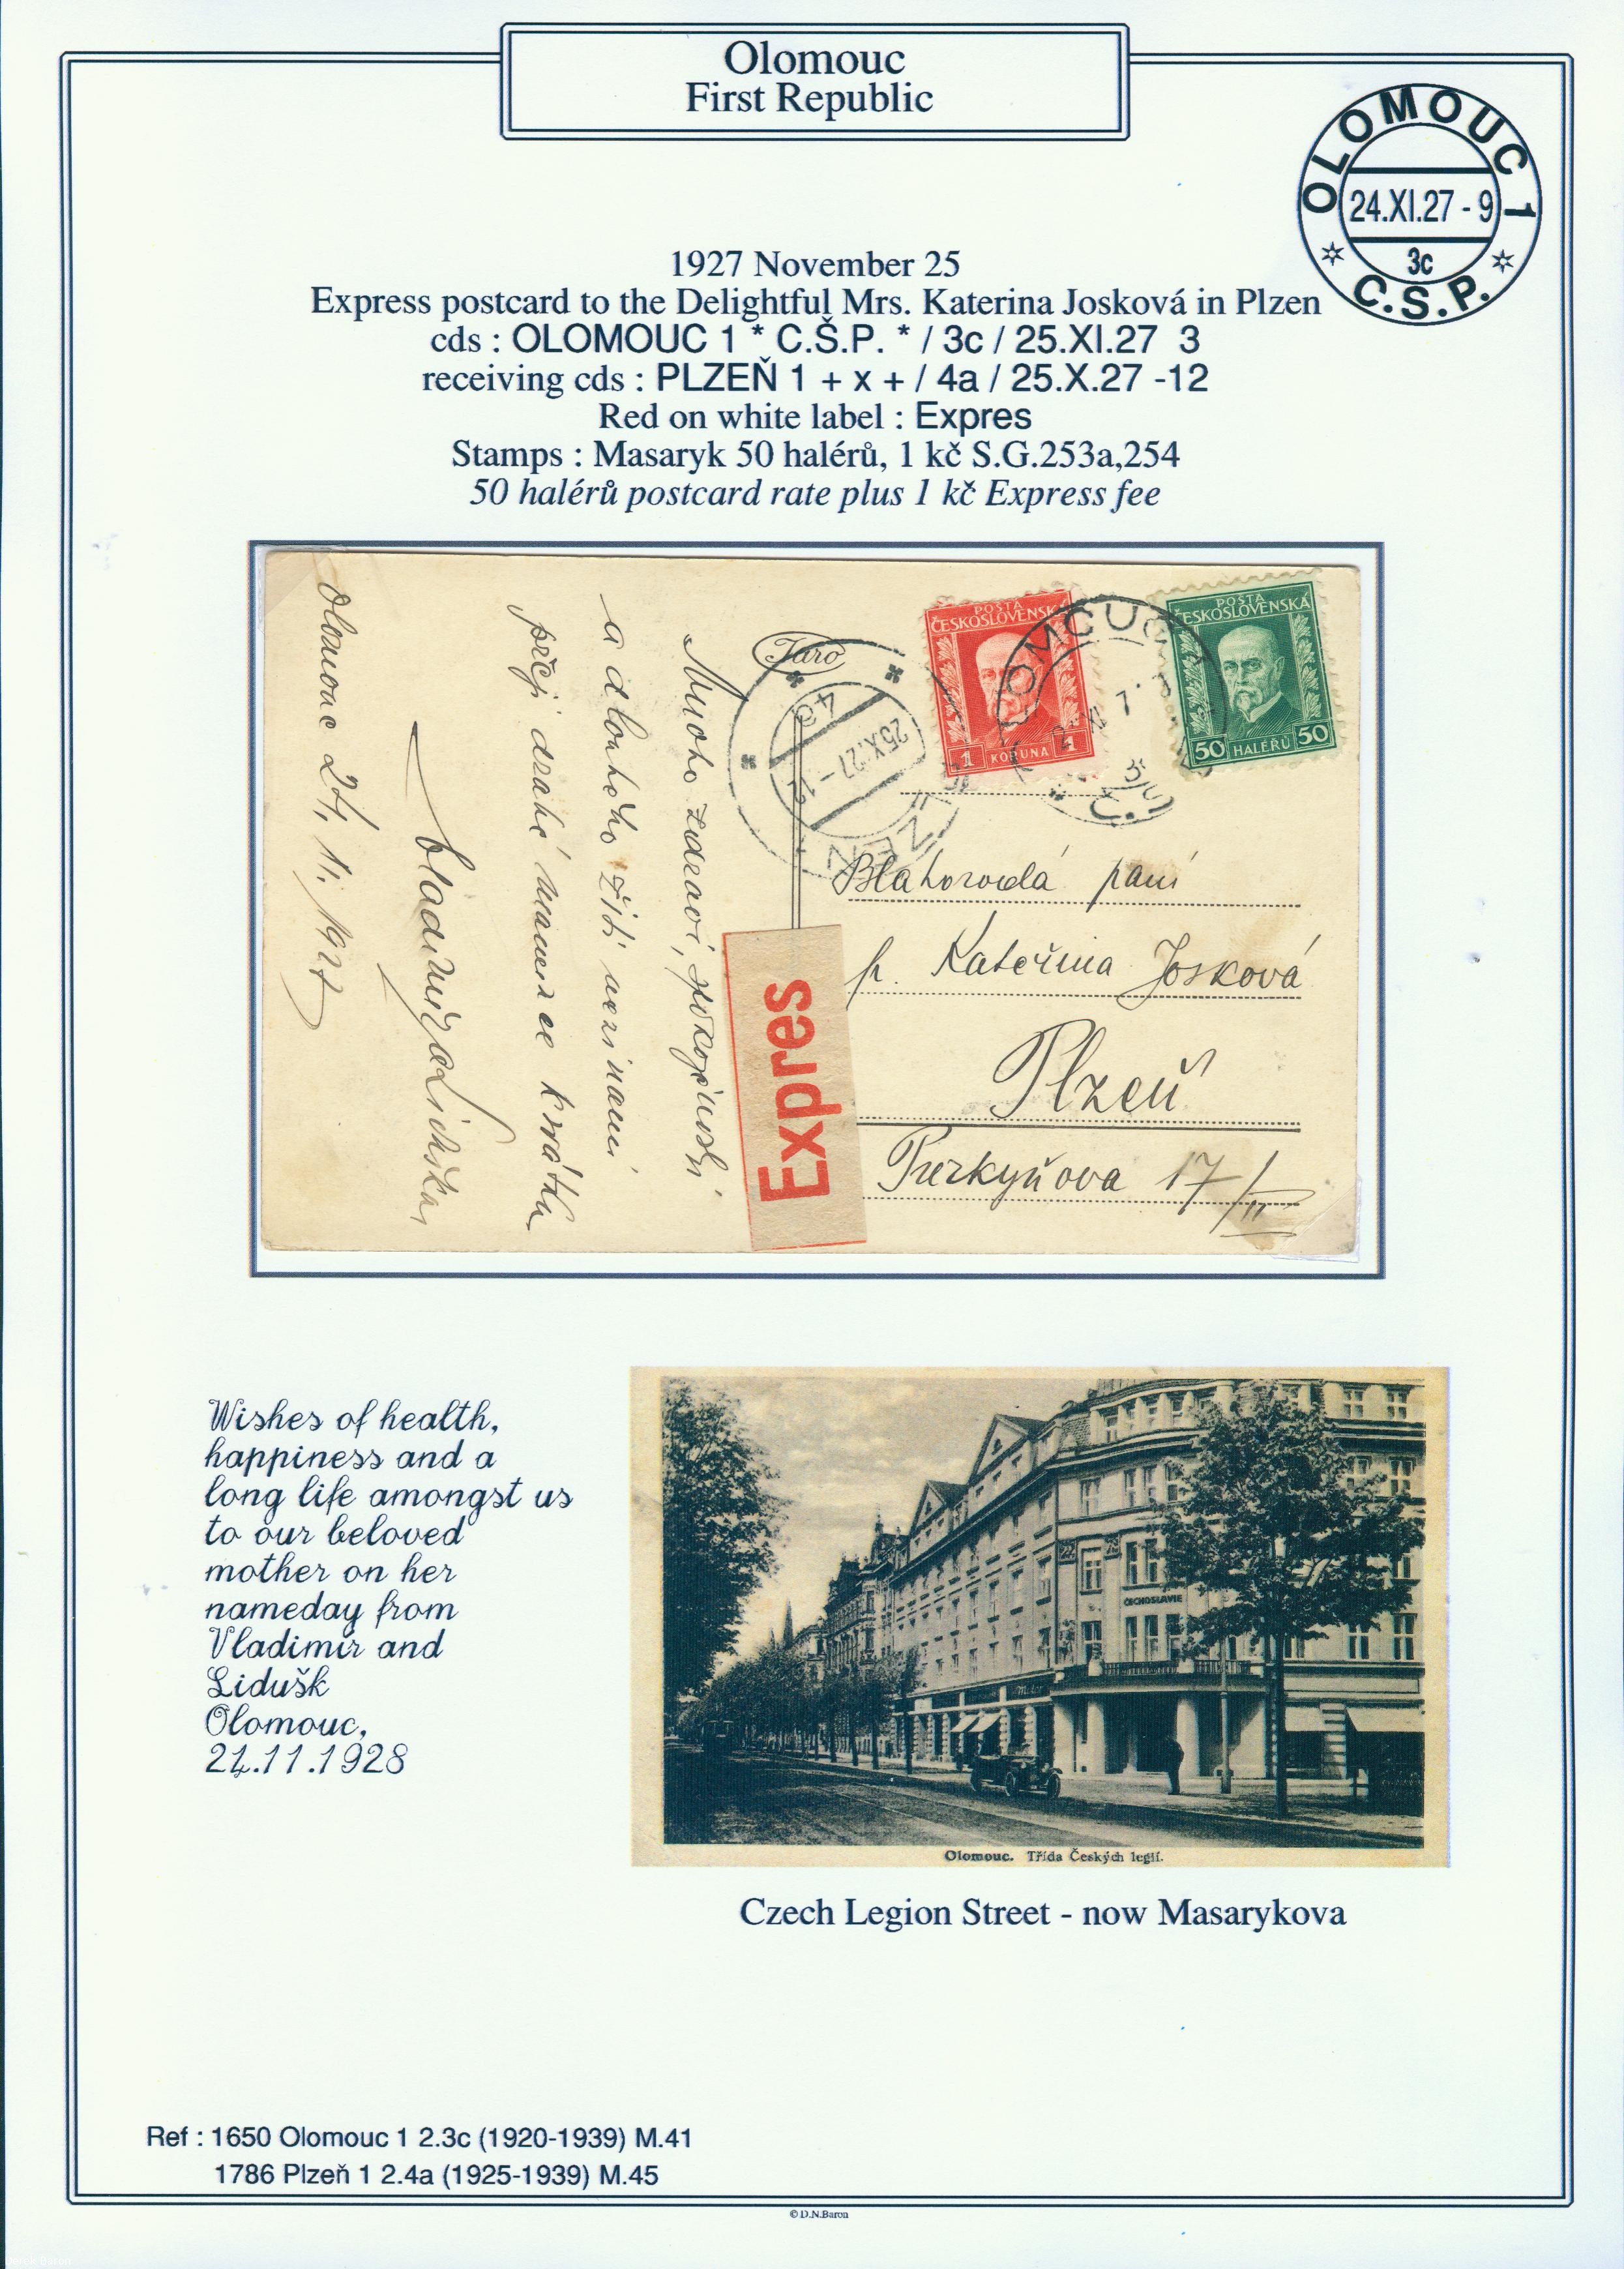 Olomouc
First Republic
OLOMOUC 1
24.XI.27 - 9
3c
C.S.P.
1927 November 25
Express postcard to the Delightful Mrs. Katerina Josková in Plzen
cds : OLOMOUC 1 * C.Š.P. * / 3c / 25.XI.27 3
receiving cds : PLZEŇ 1 + x + / 4a / 25.X.27 -12
Red on white label : Expres
Stamps : Masaryk 50 halérů, 1 kč S.G.253a,254
50 halérů postcard rate plus 1 kč Express fee
POSTA
ČESKOSLOVENSKÁ
1 KORUNA 1
POSTA
ČESKOSLOVENSKÁ
50 HALÉŘŮ 50
Taro
4a
25.X.27-12
PLZEŇ
Mnoho zdraví, spokojnosti
a dlouhého žití mezi námi
přejí drahé mamince k svátku
Olomouc 24. 11. 1927
Blahorodá paní
p. Kateřina Josková
Plzeň
Purkyňova 17/II
Expres
Wishes of health,
happiness and a
long life amongst us
to our beloved
mother on her
nameday from
Vladimír and
Lidušk
Olomouc,
24.11.1928
ČECHOSLAVIE
Olomouc. Třída Českých legií.
Czech Legion Street - now Masarykova
Ref : 1650 Olomouc 1 2.3c (1920-1939) M.41
1786 Plzeň 1 2.4a (1925-1939) M.45
© D.N.Baron
Derek Baron